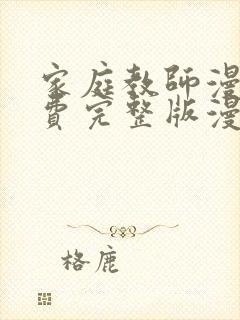 家庭教師漫
費完整版漫
格鹿